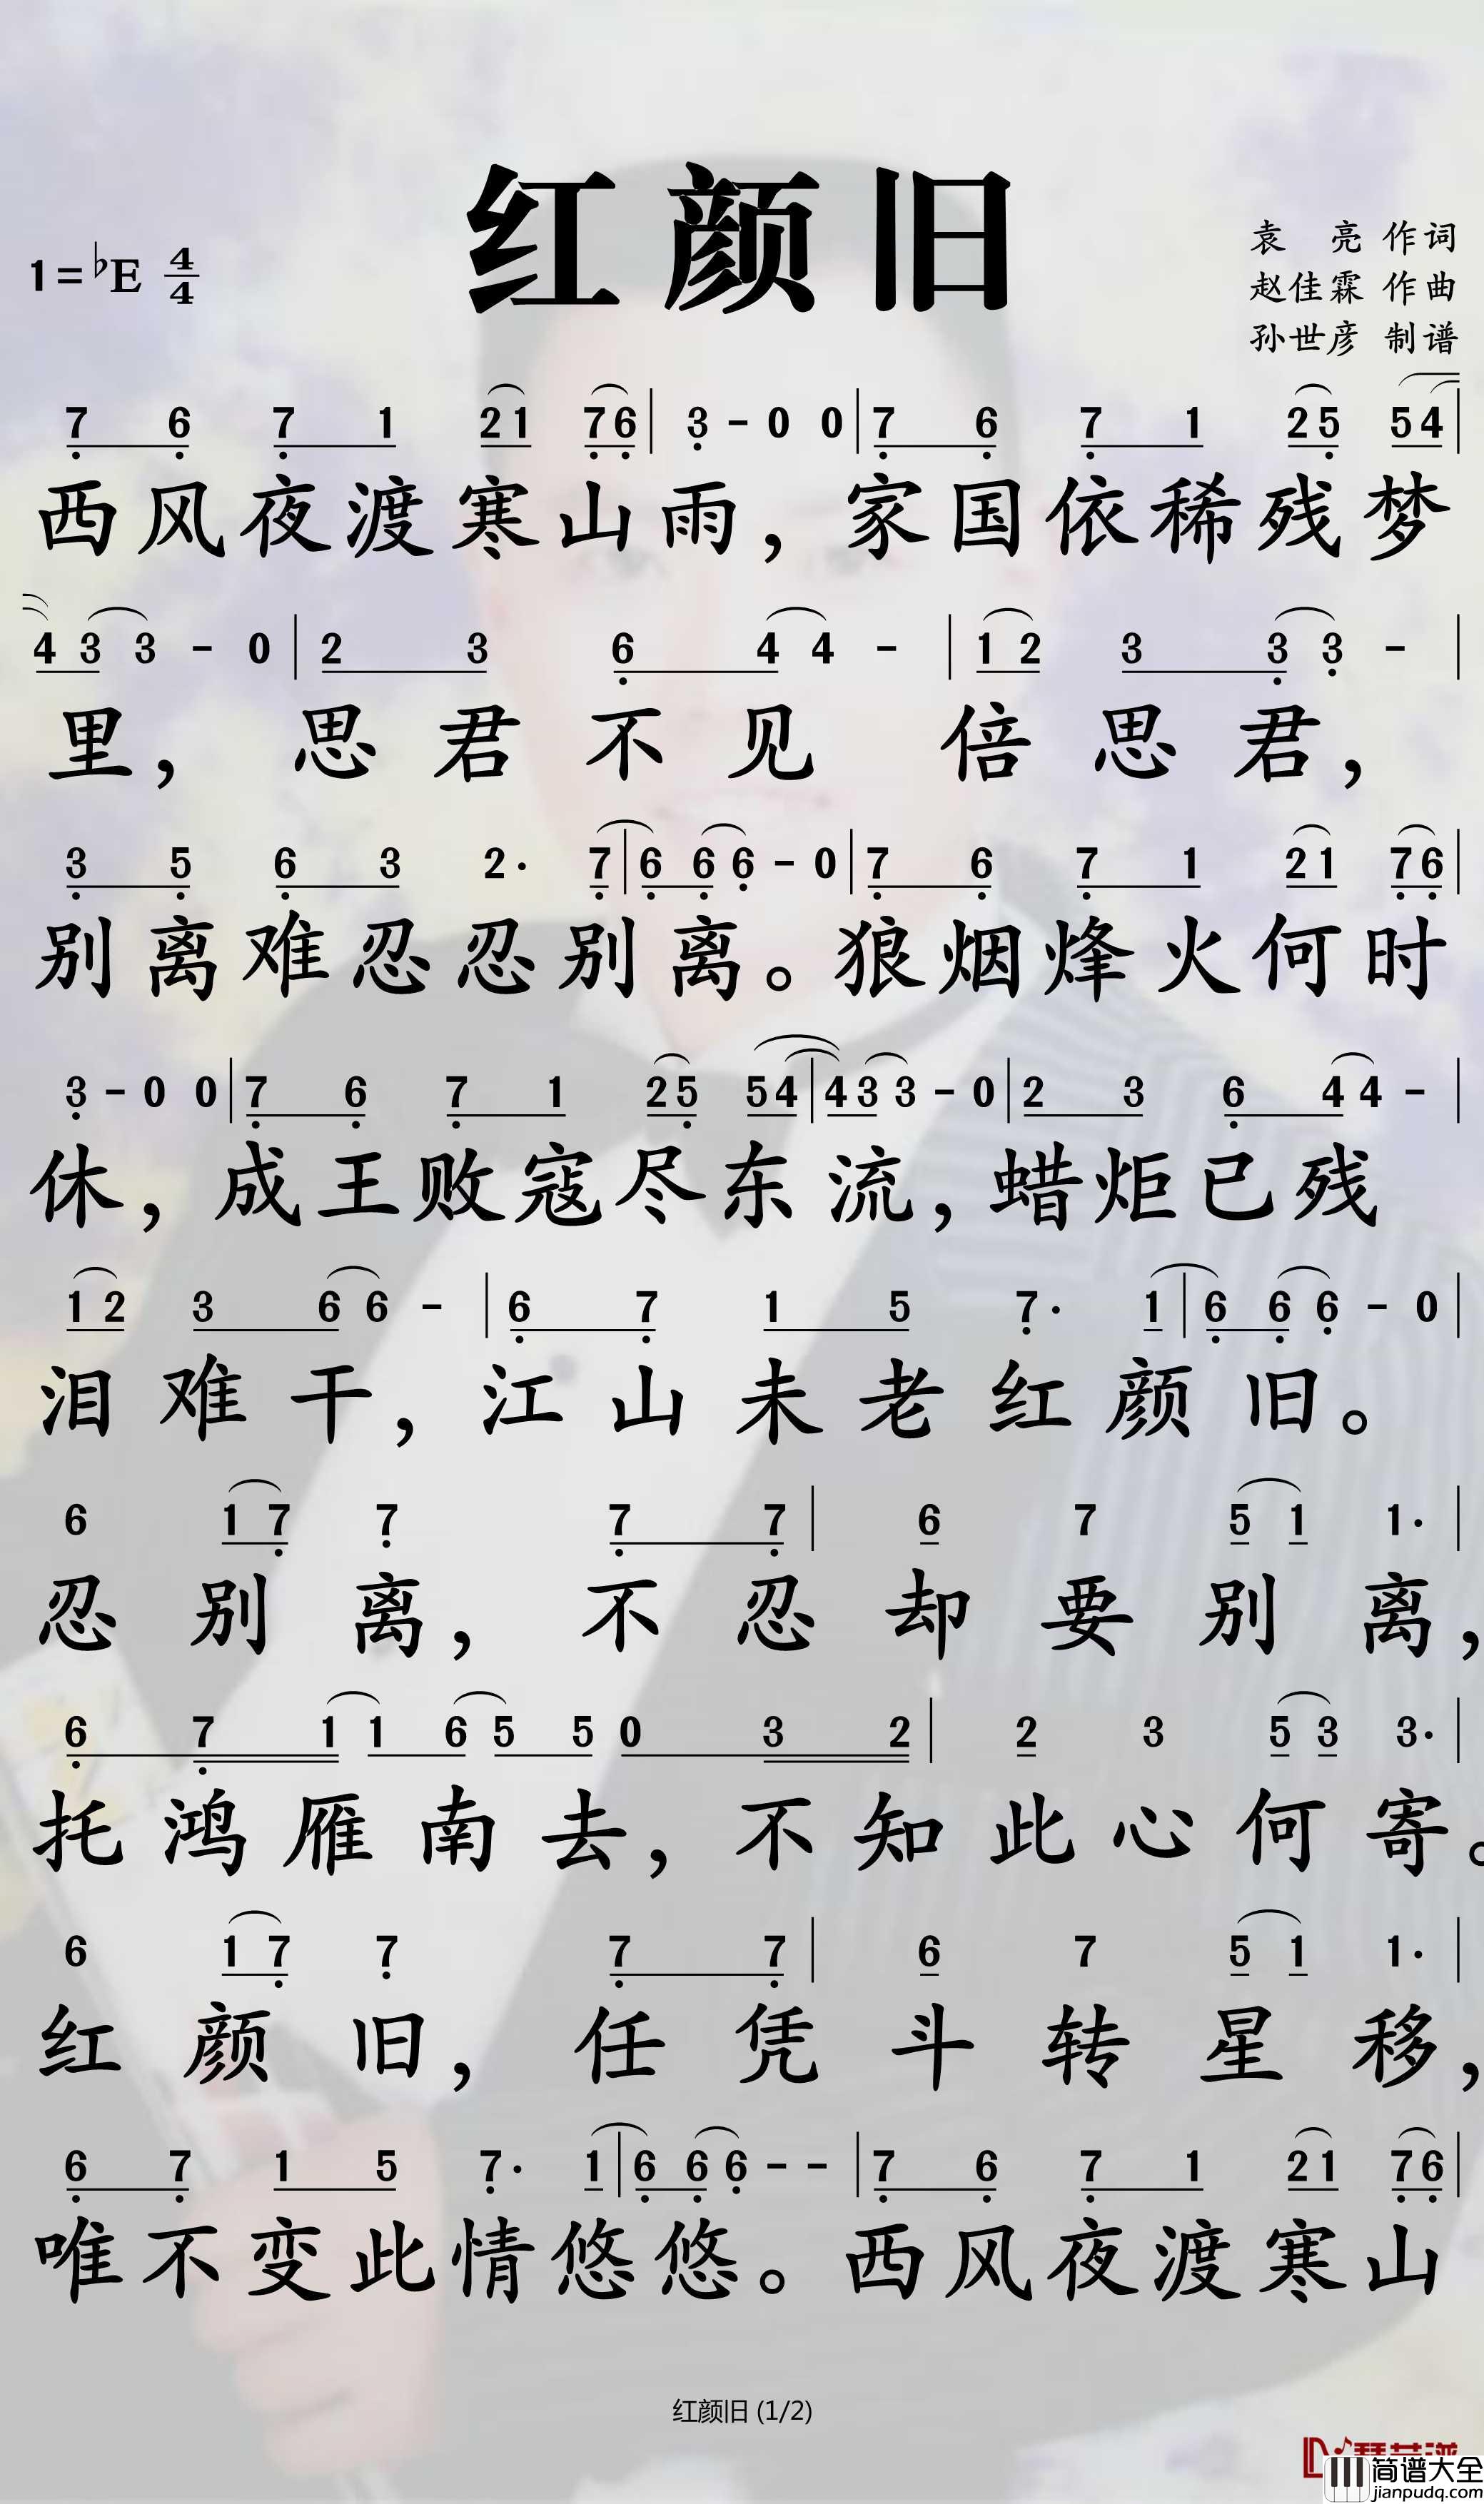 红颜旧
1=♭E 4/4
袁 亮 作词
赵佳霖 作曲
孙世彦 制谱
7̣ 6̣ 7̣ 1 2 1 7̣ 6̣ | 3̣ - 0 0 | 7̣ 6̣ 7̣ 1 2 5̣ 5 4 |
西风夜渡寒山雨，家国依稀残梦
4 3 3 - 0 | 2 3 6̣ 4 4 - | 1 2 3 3̣ 3̣ - |
里，思君不见倍思君，
3̣ 5̣ 6̣ 3 2· 7̣ | 6̣ 6̣ 6̣ - 0 | 7̣ 6̣ 7̣ 1 2 1 7̣ 6̣ |
别离难忍忍别离。狼烟烽火何时
3̣ - 0 0 | 7̣ 6̣ 7̣ 1 2 5̣ 5 4 | 4 3 3 - 0 | 2 3 6̣ 4 4 - |
休，成王败寇尽东流，蜡炬已残
1 2 3 6 6 - | 6̣ 7̣ 1 5 7̣· 1 | 6̣ 6̣ 6̣ - 0 |
泪难干，江山未老红颜旧。
6 1 7̣ 7̣ 7̣ 7̣ | 6 7 5 1 1· |
忍别离，不忍却要别离，
6̣ 7̣ 1 1 6 5 5 0 3 2 | 2 3 5 3 3· |
托鸿雁南去，不知此心何寄。
6 1 7̣ 7̣ 7̣ 7̣ | 6 7 5 1 1· |
红颜旧，任凭斗转星移，
6̣ 7̣ 1 5 7̣· 1 | 6̣ 6̣ 6̣ - - | 7̣ 6̣ 7̣ 1 2 1 7̣ 6̣ |
唯不变此情悠悠。西风夜渡寒山
红颜旧 (1/2)
简谱大全
jianpudq.com